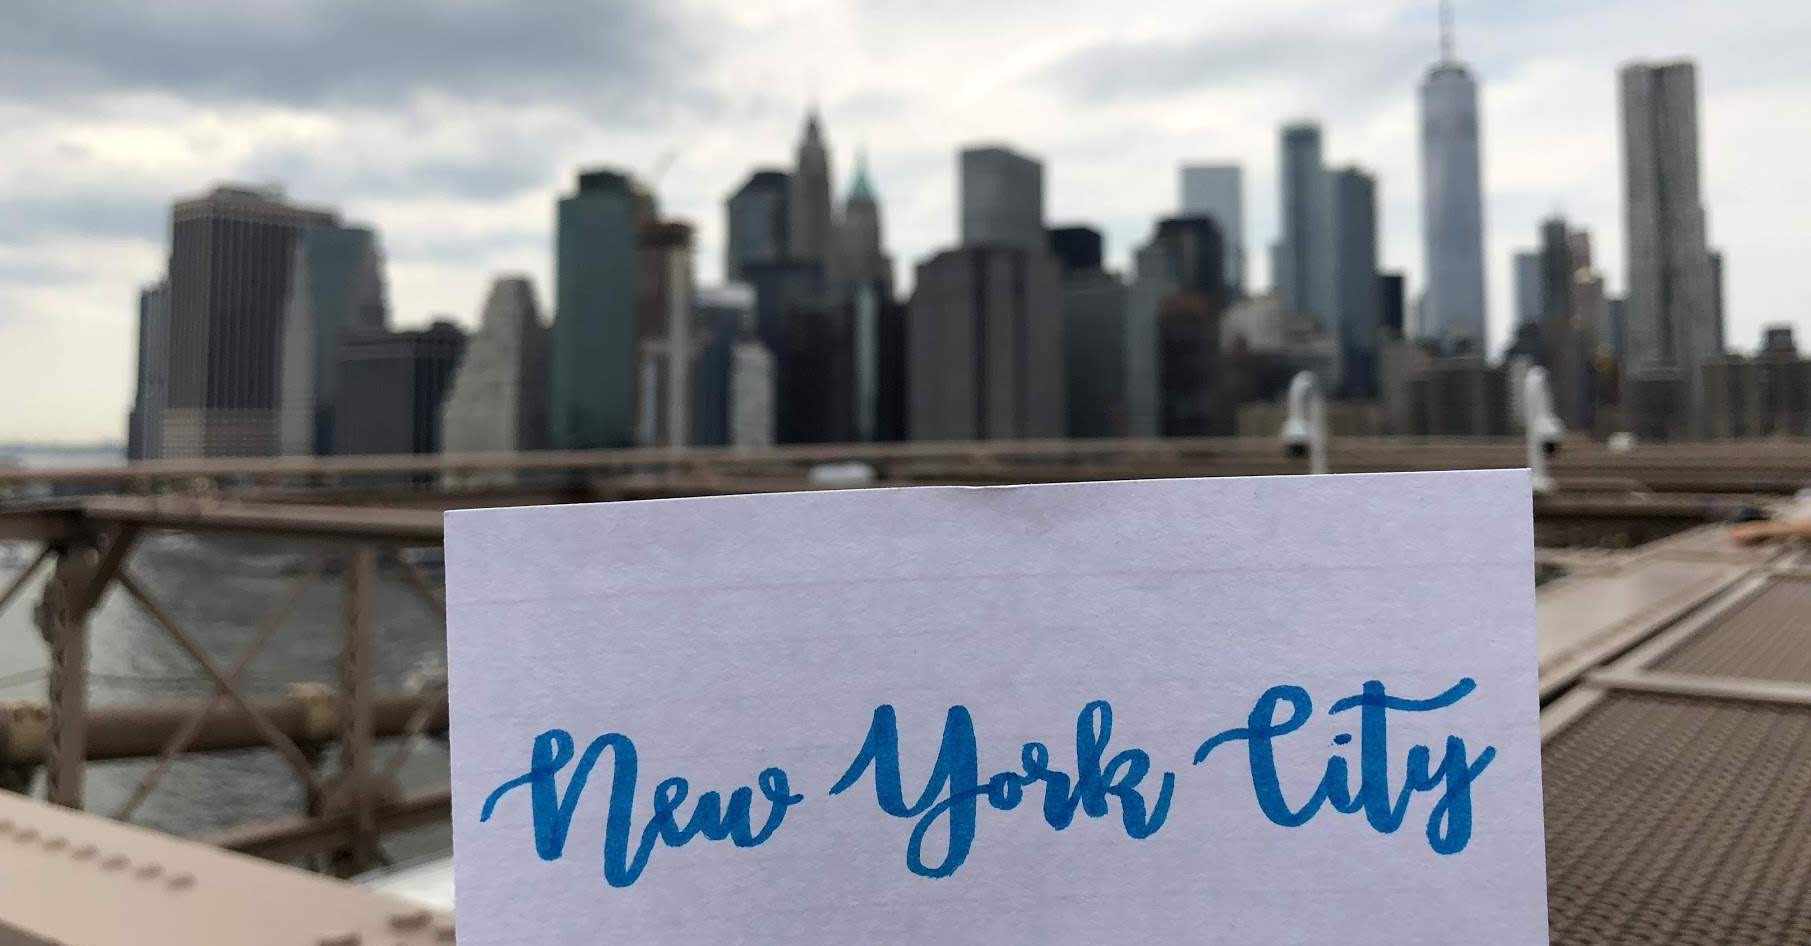 New York City